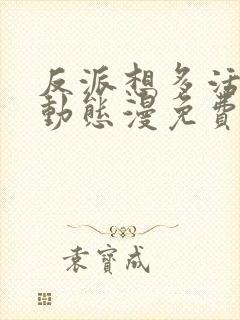 反派想多活
動態漫免費
袁寶成